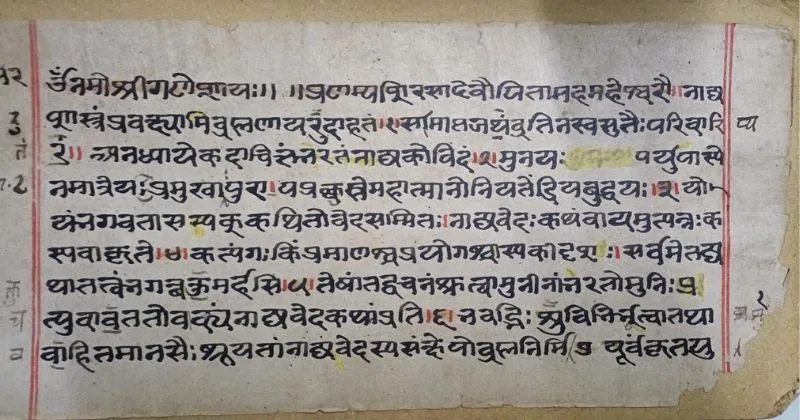 ॐनमोश्रीगणेशायः।। ।।प्रणम्यशिरसादेवौपितामहमहेश्वरौ।।नाट्य
शास्त्रंप्रवक्ष्यामिब्रह्मणायदुदाहृतं।१।समाप्तजप्यंव्रतिनंस्वसुतैःपरिवारि
तं।।अनध्यायेकदाचित्तंनरतंनाट्यकोविदं।२।मुनयः पर्युपास्ये
नमात्रेयःप्रमुखापुरा।पप्रच्छुस्तेमहात्मानोनियतेंद्रियबुद्धयः।३।यो
यंनगवतासम्यक्कथितोवेदसम्मितः।नाट्यवेदःकथंवायमुत्पन्नःक
स्यवाकृते।४।कत्यंगःकिंप्रमाणश्चप्रयोगश्चास्यकीदृशः।सर्वमेतद्य
थातत्त्वंनगवन्वक्तुमर्हसि।५।तेषांतद्वचनंश्रुत्वामुनीनांनरतोमुनिः।प्र
त्युवाचततोवाक्यंनाट्यवेदकथांप्रति।६।नवद्भिःशुचिनिर्भूत्वातथा
वाहितमानसैःश्रूयतांनाट्यवेदस्यसंक्षेपोब्रह्मनिर्मि७ पूर्वकृतयु